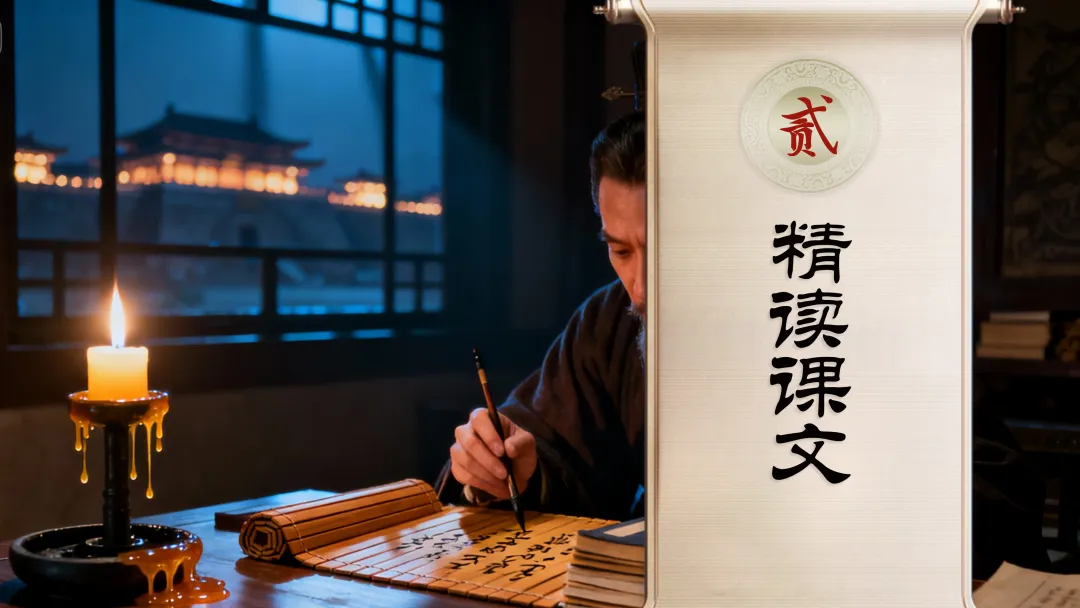 贰
精读课文